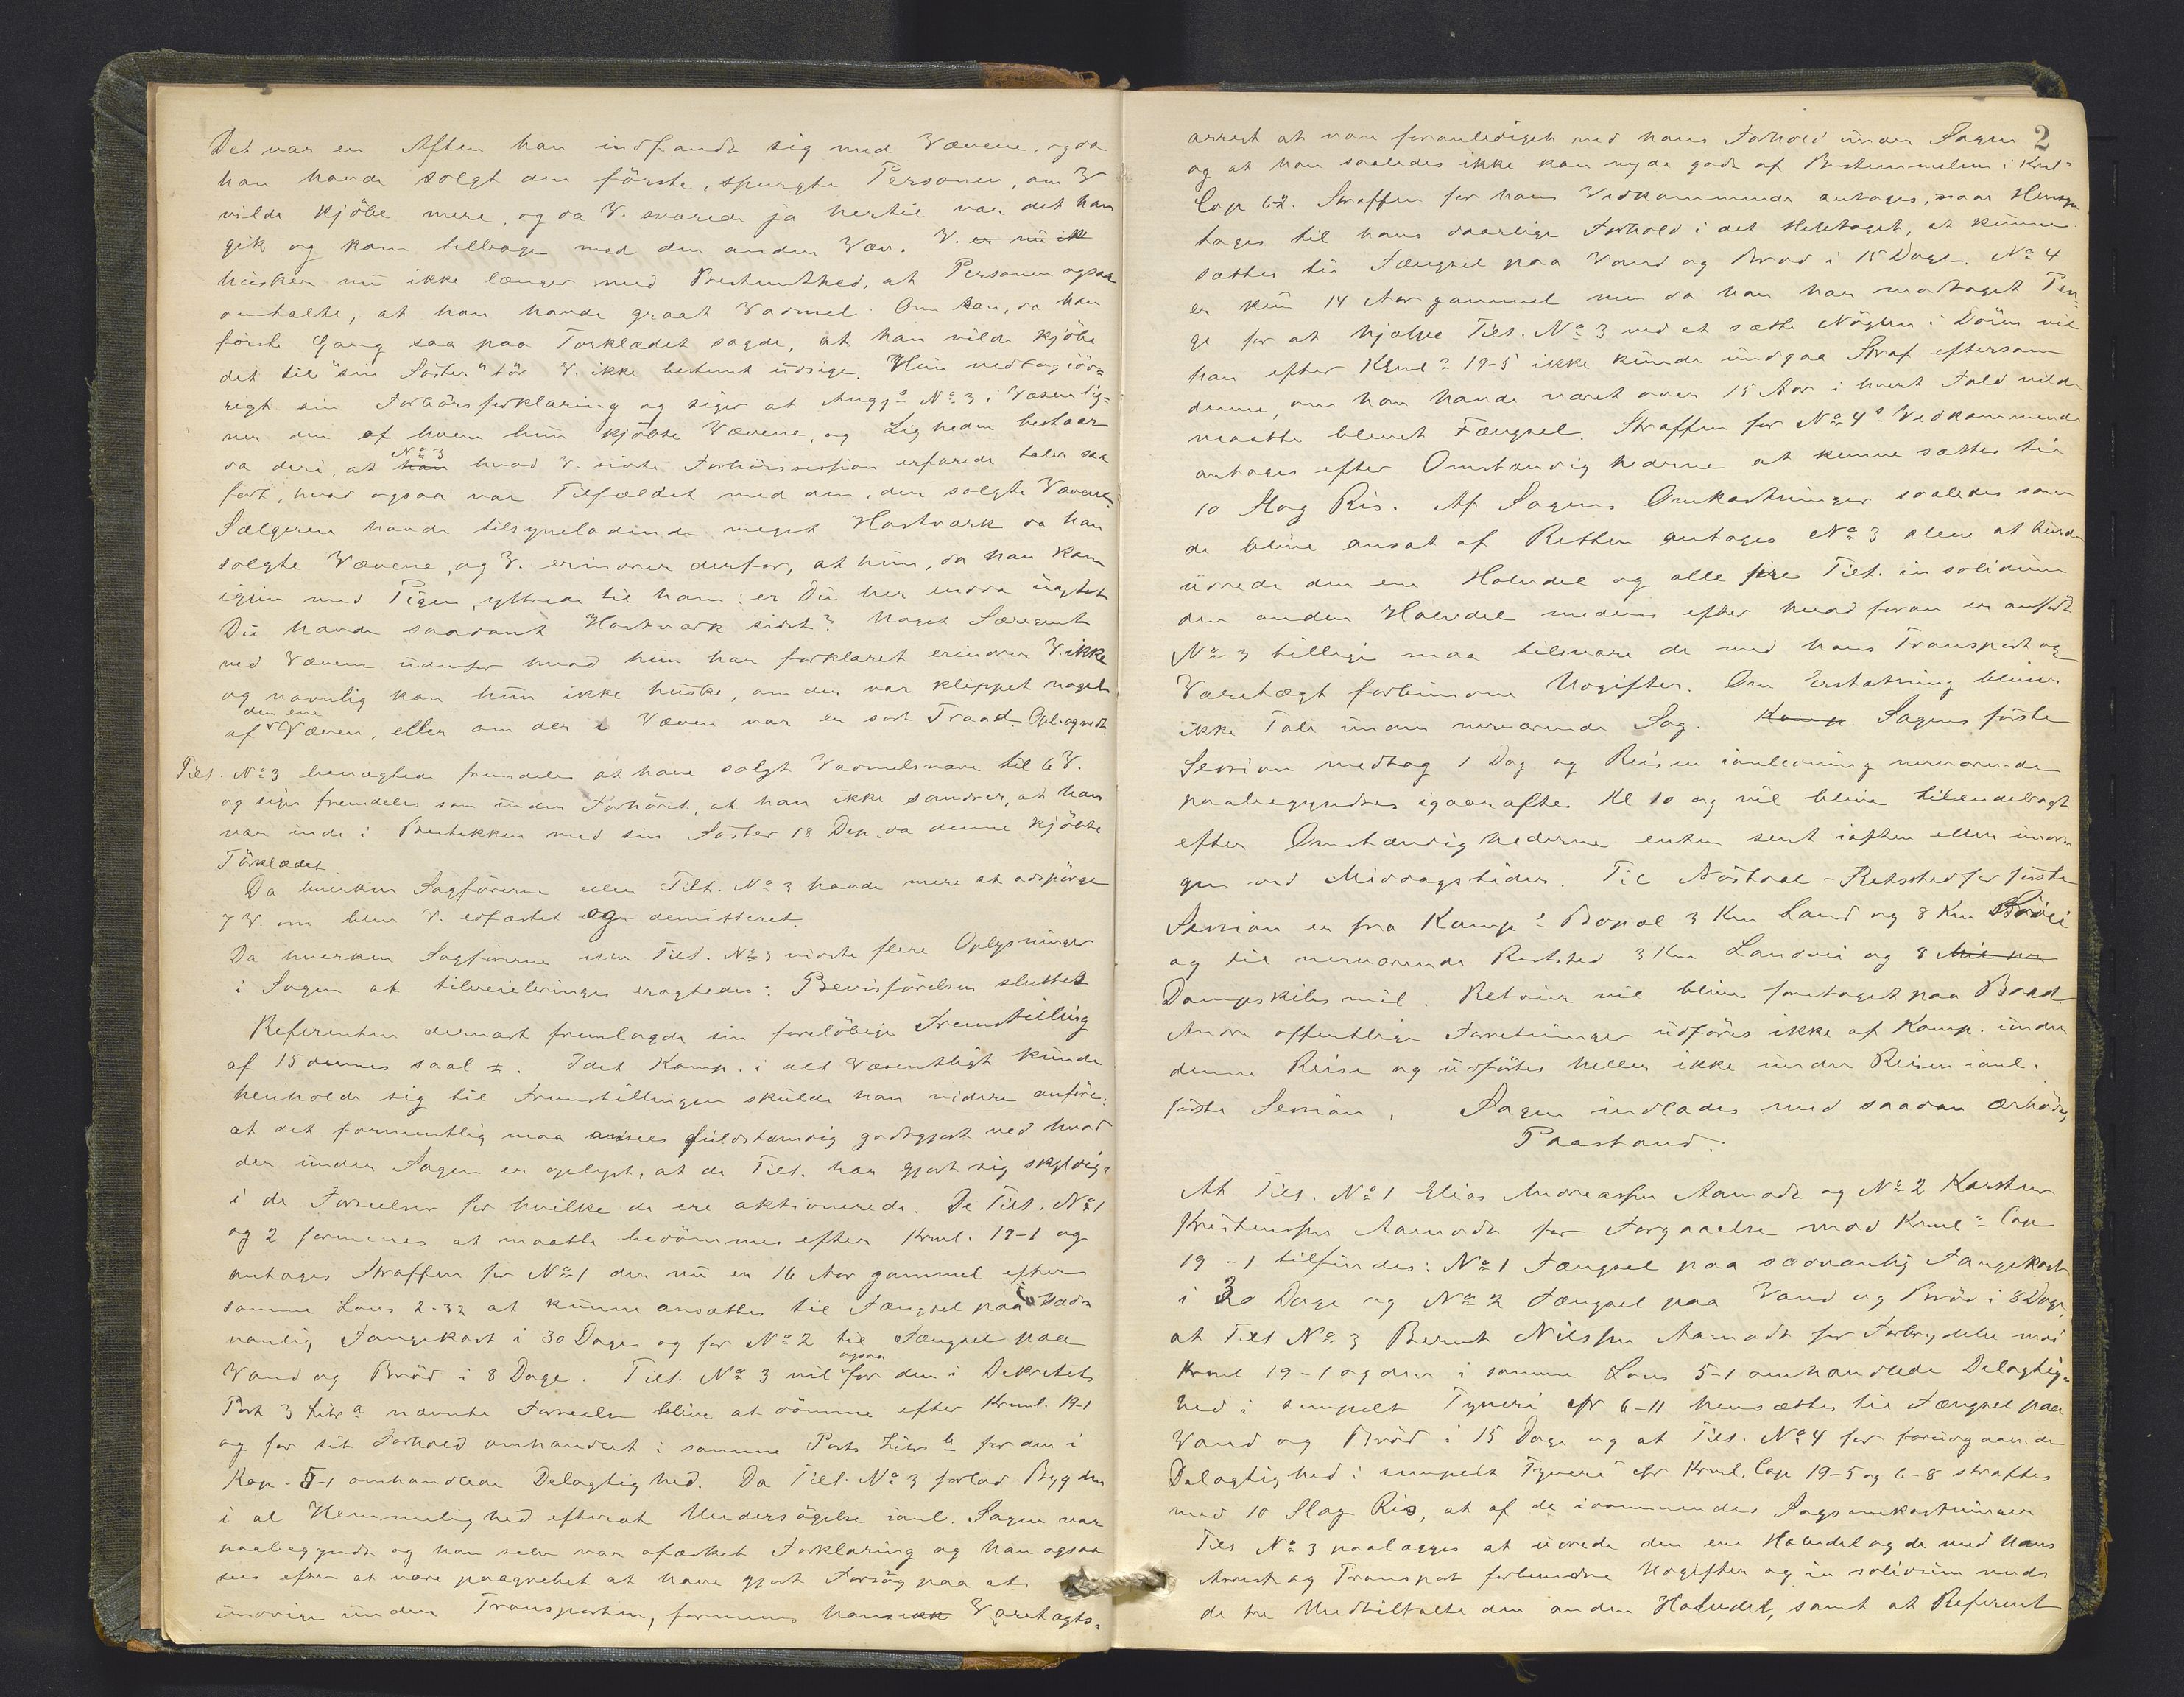 Det var en Aften han indfandt sig med Vævene, og da
han havde solgt den förste, spurgte Personen, om V
vilde kjöbe mere, og da V. svarede ja hertil var det han
gik og kom tilbage med den anden Væv. V. er nu ik
husker nu ikke længer med Bestemthed, at Personen ogsaa
omtalte, at han havde graat Vadmel. Om han, da han
förste Gang saa paa Törklædet sagde, at han vilde kjöbe
det til "sin Söster" tör V. ikke bestemt udsige. Hun vedtog iöv-
rigt sin Forhörsforklaring og siger at Angj. No 3 i Væsen lig-
ner den af hvem hun kjöbte Vævene, og Ligheden bestaar
No 3
da deri, at han hvad V. sidste Forhörssession erfarede taler saa
fort, hvad ogsaa var Tilfældet med den, der solgte Vævene.
Sælgeren havde tilsyneladende meget Hastværk da han
solgte Vævene, og V. erindrer derfor, at hun, da han kom
igjen med Pigen, yttrede til ham: er Du her endda uagtet
Du havde saadant Hastværk sidst? Noget Særegent
ved Vævene udenfor hvad hun har forklaret erindrer V. ikke
og navnlig kan hun ikke huske, om der var klippet noget
den ene
af Væven, eller om der i Væven var en sort Traad. Opl. og vedt.
Tilt. No 3 benægtede fremdeles at have solgt Vadmelsvæve til 6 V.
og siger fremdeles som under Forhöret, at han ikke sandser, at han
var inde i Butikken med sin Söster 18 Dep. da denne kjöbte
Törklædet.
Da hverken Sagförerne eller Tilt. No 3 havde mere at adspörge
7 V. om blev V. edfæstet og demitteret.
Da hverken Sagförerne eller Tilt. No 3 vidste flere Oplysninger
i Sagen at tilveiebringe eragtedes: Bevisförelsen sluttet
Referenten dernæst fremlagde sin forelöbige Fremstilling
af 15 dennes saal. Idet Komp. i alt Væsentligt kunde
henholde sig til Fremstillingen skulde han videre anföre:
at det formentlig maa ansees fuldstændig godtgjort ved hvad
der under Sagen er oplyst, at de Tilt. har gjort sig skyldige
i de Forseelser for hvilke de ere aktionerede. De Tilt. No 1
og 2 formenes at maatte bedömmes efter Krml. 19-1 og
antages Straffen for No 1 der nu er 16 Aar gammel efter
samme Lovs 2-32 at kunne ansættes til Fængsel paa sæd-
vanlig Fangekost i 30 Dage og for No 2 til Fængsel paa
ogsaa
Vand og Bröd i 8 Dage. Tilt. No 3 vil for den i Dekretets
Post 3 Litr a nævnte Forseelse blive at dömme efter Krml. 19-1
og for sit Forhold omhandlet i samme Posts Litr b for den i
Kap. 5-1 omhandlede Delagtighed. Da Tilt. No 3 forlod Bygden
i al Hemmelighed efterat Undersögelse i anl. Sagen var
paabegyndt og han selv var afæsket Forklaring og han ogsaa
sees efter at være paagrebet at have gjort Forsög paa at
undvige under Transporten, formenes hans Varetægts-
2
arrest at være foranlediget ved hans Forhold under Sagen
og at han saaledes ikke kan nyde godt af Bestemmelsen i Krml.
Cap 6-2. Straffen for hans Vedkommende antages, naar Hensyn
tages til hans daarlige Forhold i det Heletaget, at kunne
sættes til Fængsel paa Vand og Bröd i 15 Dage. No 4
er kun 14 Aar gammel men da han har modtaget Pen-
ge for at hjælpe Tilt. No 3 ved at sætte Nöglen i Dören vil
han efter Krml. 19-5 ikke kunde undgaa Straf eftersom
denne, om han havde været over 15 Aar i hvert Fald vilde
maatte blevet Fængsel. Straffen for No 4s Vedkommende
antages efter Omstændighederne at kunne sættes til
10 Slag Ris. Af Sagens Omkostninger saaledes som
de blive ansat af Retten antages No 3 alene at burde
udrede den ene Halvdel og alle fire Tilt. in solidum
den anden Halvdel medens efter hvad foran er anfört
No 3 tillige maa tilsvare de med hans Transport og
Varetægt forbundne Udgifter. Om Erstatning bliver
ikke Tale under nærværende Sag. Komp Sagens förste
Session medtog 1 Dag og Reisen i anledning nærværende
paabegyndtes igaaraftes Kl 10 og vil blive tilendebragt
efter Omstændighederne enten sent iaften eller imor-
gen ved Middagstider. Til Nöstdal-Retssted for förste
Session er fra Komp's Bopæl 3 Km Land og 8 Km Sövei
og til nærværende Retssted 3 Km Landvei og 8 Mil
Dampskibsmil. Retreien vil blive foretaget paa Baad.
Andre offentlige Forretninger udföres ikke af Komp. under
denne Reise og udförtes heller ikke under Reisen i anl.
förste Session. Sagen indlades med saadan ærbödig
Paastand.
At Tilt. No 1 Elias Andreassen Aamodt og No 2 Karsten
Kristensen Aamodt for Forgaaelse mod Krml. Cap
19-1 tilfindes: No 1 Fængsel paa sædvanlig Fangekost
i 30 Dage og No 2 Fængsel paa Vand og Bröd i 8 Dage,
at Tilt No 3 Bernt Nilssen Aamodt for Forbrydelse mod
Krml 19-1 og den i samme Lovs 5-1 omhandlede Delagtig-
hed i simpelt Tyveri cfr 6-11 hensættes til Fængsel paa
Vand og Bröd i 15 Dage og at Tilt. No 4 for forudgaaende
Delagtighed i simpelt Tyveri cfr Krml. Cap 19-5 og 6-8 straffes
med 10 Slag Ris, at af de idömmendes Sagsomkostninger
Tilt No 3 paalægges at udrede den ene Halvdel og de med hans
Arrest og Transport forbundne Udgifter og in solidum med
de tre Medtiltalte den anden Halvdel, samt at Referent